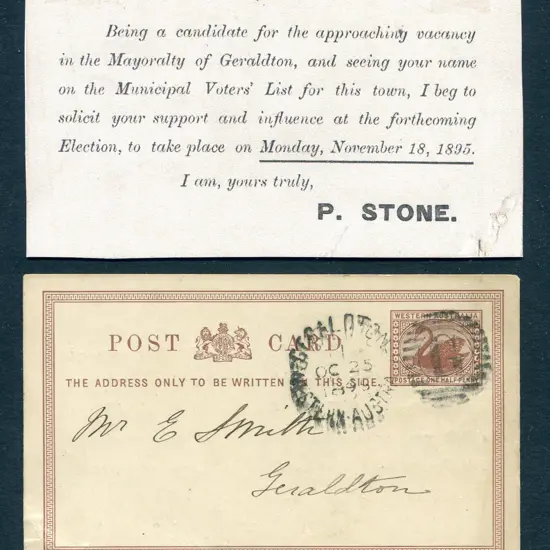 Being a candidate for the approaching vacancy
in the Mayoralty of Geraldton, and seeing your name
on the Municipal Voters' List for this town, I beg to
solicit your support and influence at the forthcoming
Election, to take place on Monday, November 18, 1895.
I am, yours truly,
P. STONE.
POST CARD
WESTERN AUSTRALIA
POSTAGE ONE HALF PENNY
GERALDTON
OC 25
WESTERN AUSTRALIA
THE ADDRESS ONLY TO BE WRITTEN ON THIS SIDE.
Mr E Smith
Geraldton